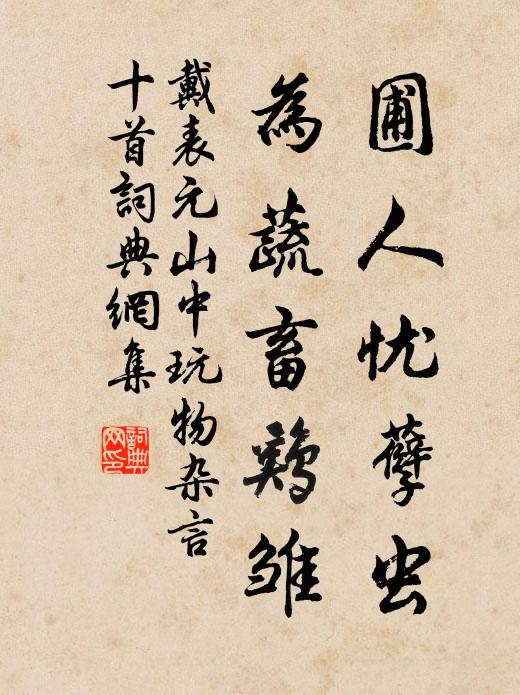 圃人忧孽虫
為蔬畜鷄雏
戴表元山中玩物杂言
十首詞典網集
詞典网印